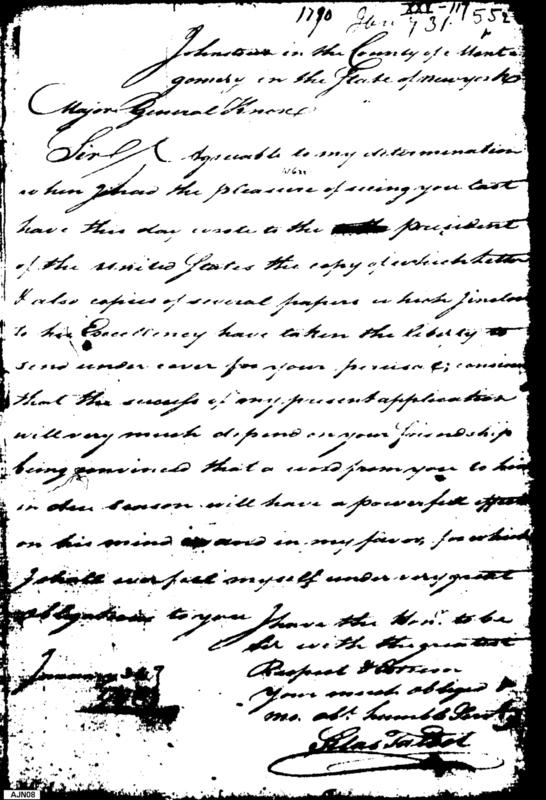 1790
XXV-117
552
Johnstown in the County of Mont
gomery in the State of New york
Major General Knox
Sir Agreeable to my determination
when I had the pleasure of seeing you last
have this day wrote to the president
of the United States the copy of which letter
& also copies of several papers which I inclose
to his Excellency have taken the liberty to
send under cover for your perusal;
that the success of my present application
will very much depend on your friendship
being convinced that a word from you to him
in due season will have a powerfull effect
on his mind and in my favor, for which
I shall ever feel myself under very great
obligations to you I have the Honr. to be
Sir with the greatest
Respect & Esteem
January
your much obliged &
mo. obt. humble Servt
Silas Talbot
AJN08